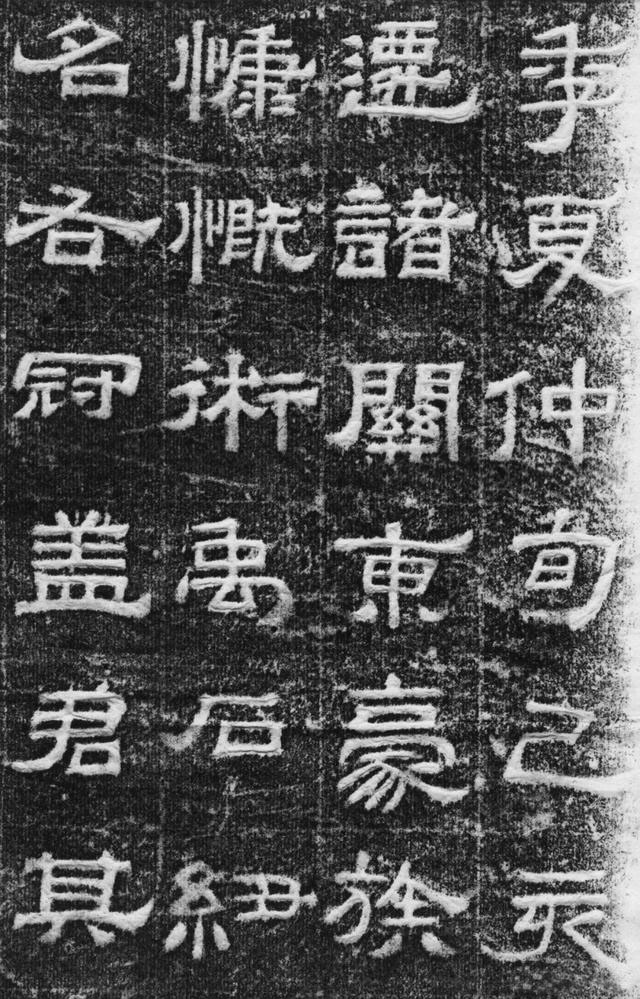 季夏仲旬己亥
遷諸關東豪族
慷慨術禹石紐
名各冠盖君其